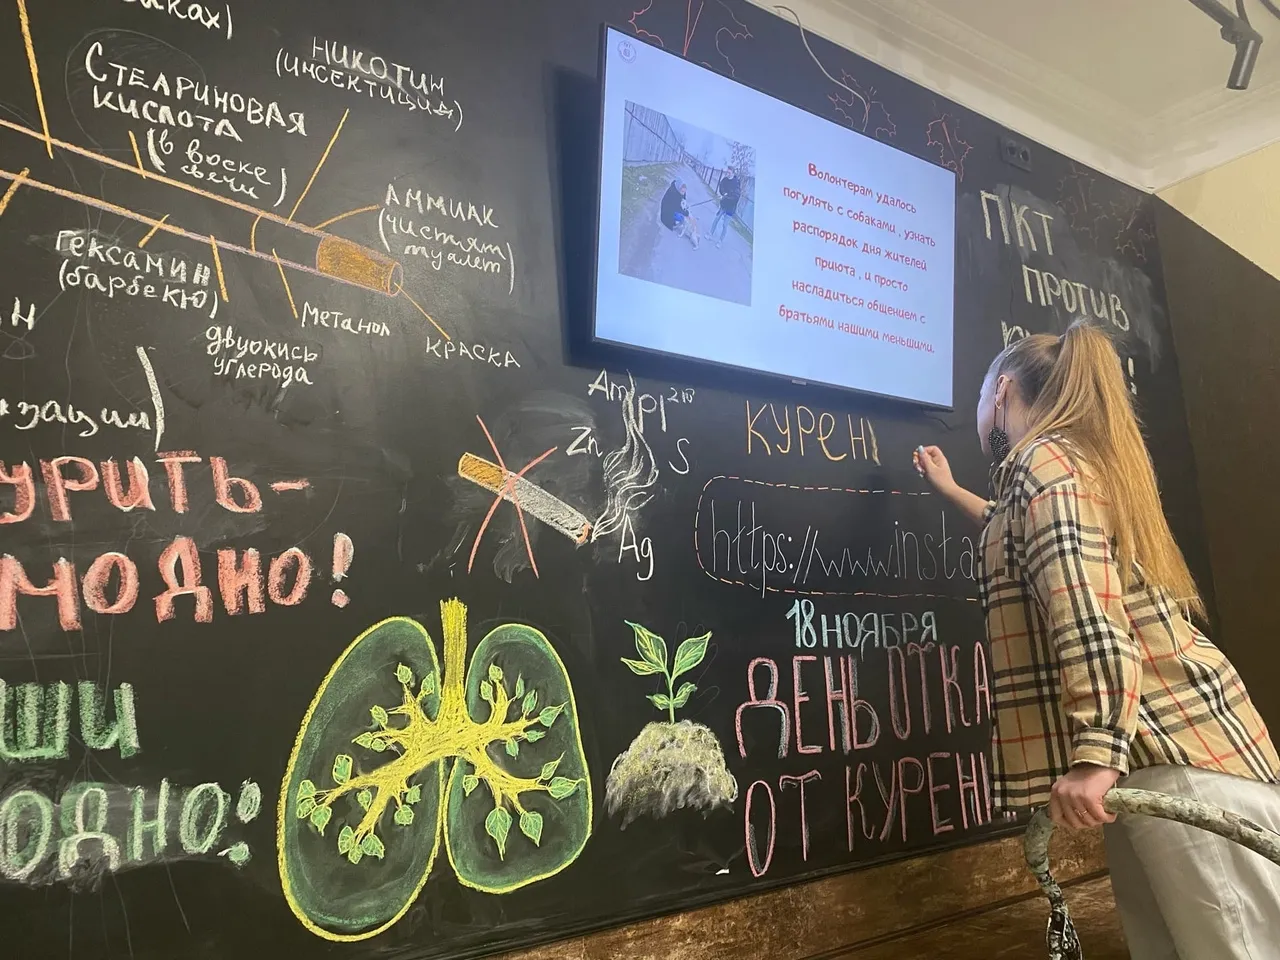 никотин
(инсектицид)
Стеариновая
кислота
(в воске
свечи)
Аммиак
(чистят
туалет)
Гексамин
(барбекю)
метанол
двуокись
углерода
краска
Волонтерам удалось
погулять с собаками , узнать
распорядок дня жителей
приюта , и просто
насладиться общением с
братьями нашими меньшими.
ПКТ
ПРОТИВ
Zn
S
Ag
КУРЕН
https://www.insta
18 НОЯБРЯ
ДЕНЬ ОТКА
ОТ КУРЕНИ
УРИТЬ-
МОДНО!
ШИ
ОДНО!